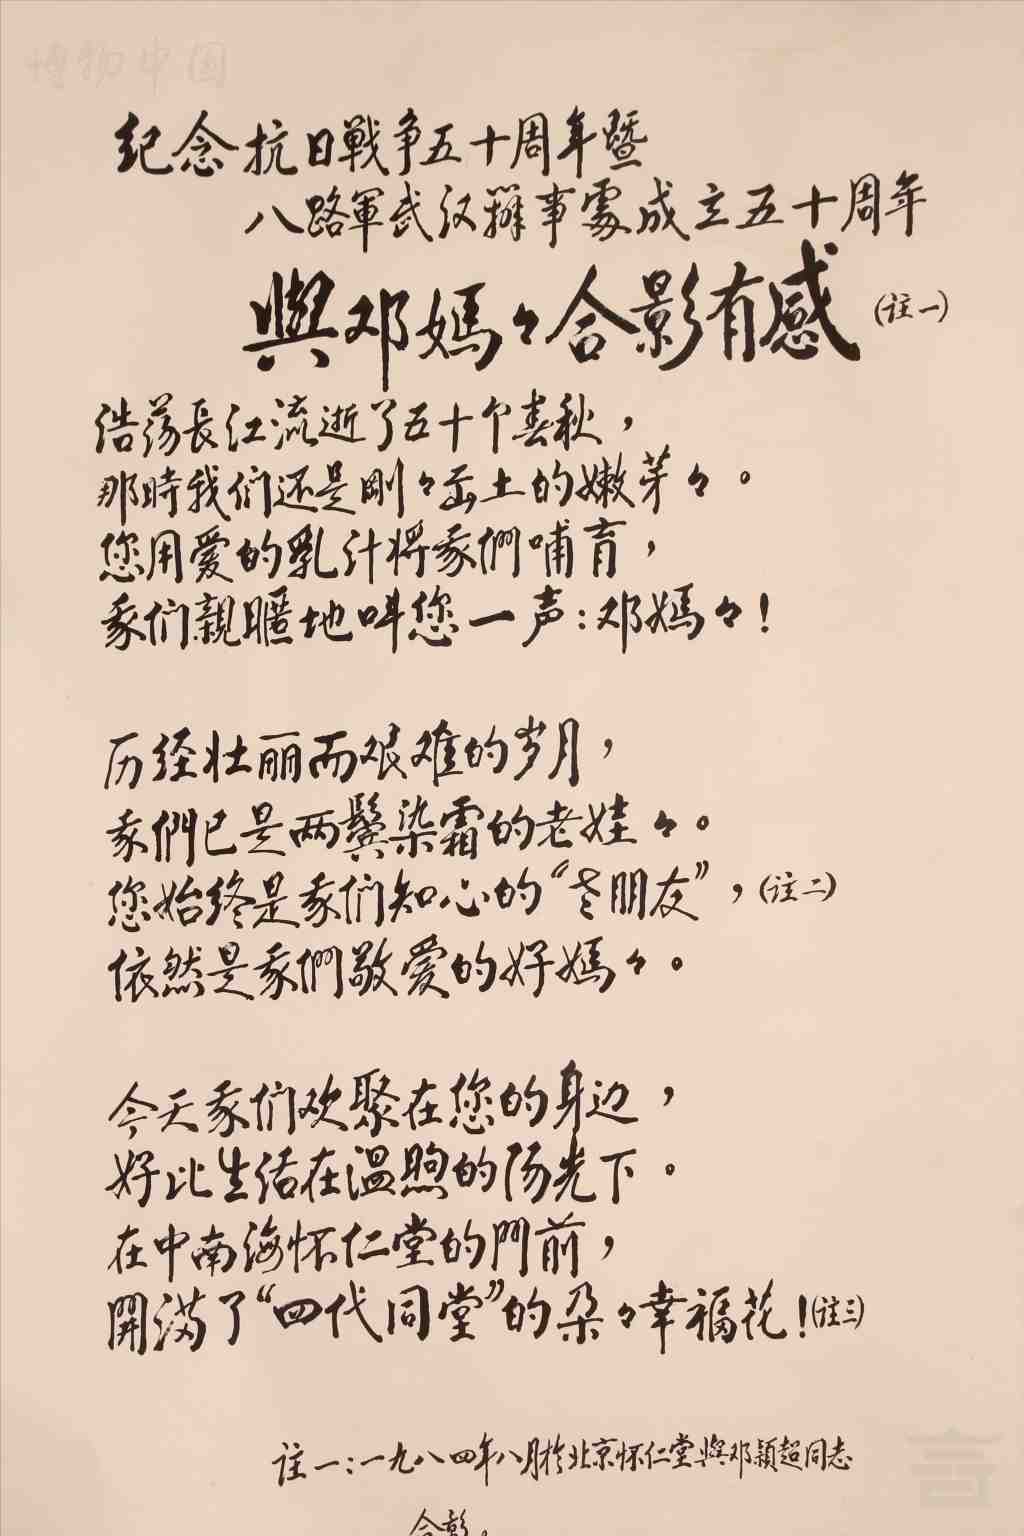 博物中国
纪念抗日戰争五十周年暨
八路軍武汉辦事處成立五十周年
與邓媽々合影有感(註一)
浩荡長江流逝了五十个春秋，
那時我们还是剛々出土的嫩芽々。
您用爱的乳汁将我們哺育，
我们親暱地叫您一声：邓媽々！
历经壮丽而艰难的岁月，
我們已是两鬓染霜的老娃々。
您始终是我们知心的“老朋友”，(註二)
依然是我們敬爱的好媽々。
今天我们欢聚在您的身边，
好比生活在温煦的阳光下。
在中南海怀仁堂的門前，
開满了“四代同堂”的朵々幸福花！(註三)
註一：一九八四年八月於北京怀仁堂與邓颖超同志
合影。